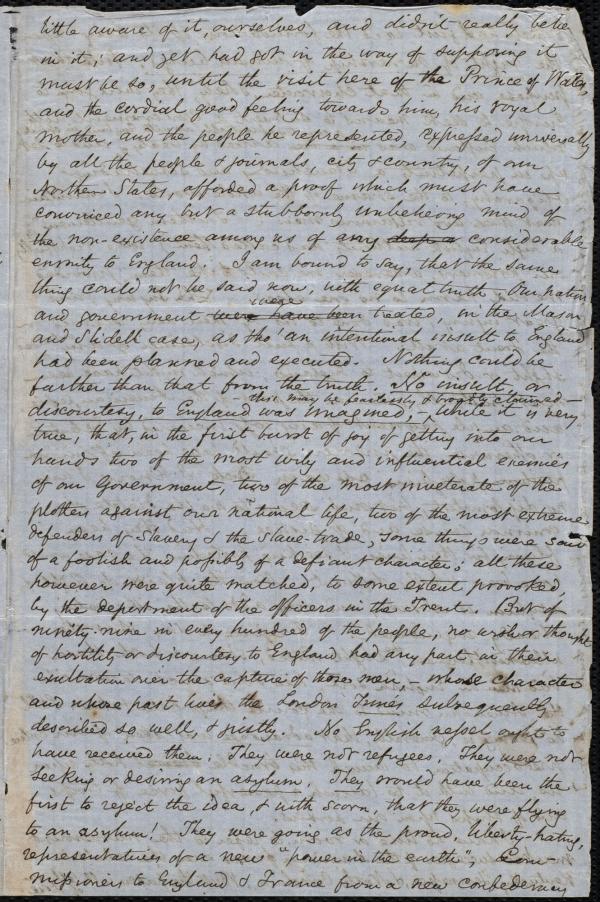 little aware of it, ourselves, and didn't really belie
in it; and yet had got in the way of supposing it
must be so, until the visit here of the Prince of Wales,
and the cordial good feeling towards him, his royal
mother, and the people he represented, expressed universally
by all the people & journals, city & country, of our
Northern States, afforded a proof which must have
convinced any but a stubbornly unbelieving mind of
the non-existence among us of any deep a considerable
enmity to England. I am bound to say, that the same
thing could not be said now, with equal truth. Our nation
were
and government were have been treated, in the Mason
and Slidell case, as tho' an intentional insult to England
had been planned and executed. Nothing could be
farther than that from the truth. No insult, or
- this may be fearlessly & broadly claimed -
discourtesy, to England was imagined, - while it is very
true, that, in the first burst of joy of getting into our
hands two of the most wily and influential enemies
of our Government, two of the most inveterate of the
plotters against our national life, two of the most extreme
defenders of Slavery & the slave-trade, some things were said
of a foolish and possibly of a defiant character; all these
however were quite matched, to some extent provoked,
by the deportment of the officers in the Trent. But of
ninety-nine in every hundred of the people, no wish or thought
of hostility or discourtesy to England had any part in their
exultation over the capture of those men, - whose character
and whose past lives the London Times subsequently
described so well, & justly. No English vessel ought to
have received them. They were not refugees. They were not
seeking or desiring an asylum. They would have been the
first to reject the idea, & with scorn, that they were flying
to an asylum! They were going as the proud, liberty-hating,
representatives of a new "power in the earth", Com-
missioners to England & France from a new confederacy